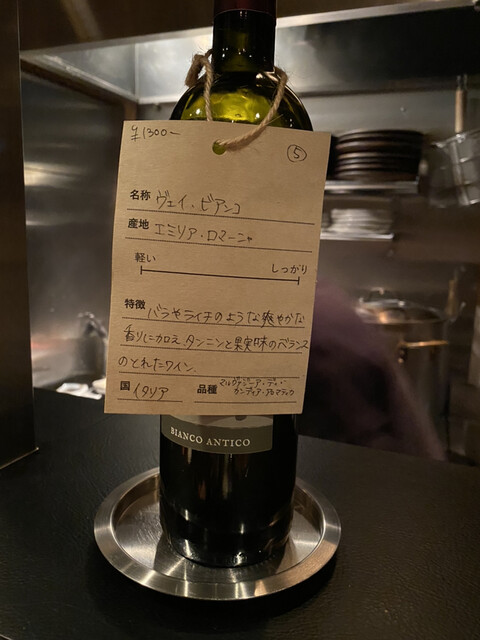 ¥1300-
⑤
名称 ヴェイ・ビアンコ
産地 エミリア・ロマーニャ
軽い しっかり
特徴 バラやライチのような爽やかな
香りに加え、タンニンと果実味のバランス
のとれたワイン.
国 イタリア 品種 マルヴァジーア・ディ・
カンディア・アロマティカ
BIANCO ANTICO